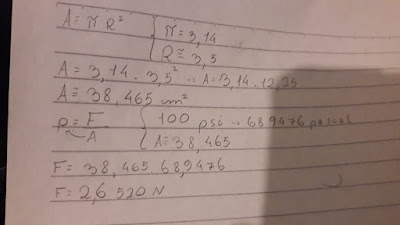 A = π R² { π = 3,14
R ≅ 3,5
A = 3,14 . 3,5² ∴ A = 3,14 . 12,25
A ≅ 38,465 cm²
p = F/A { 100 psi → 689476 pascal
A = 38,465
F = 38,465 . 689476
F = 2,6 520 N